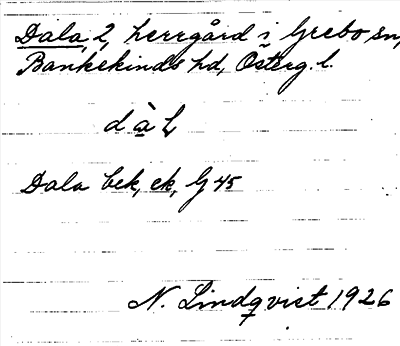 Dala, 2, herrgård i Grebo sn,
Bankekinds hd, Österg. l.
dàL
Dala bek, ek, G 45
N. Lindqvist 1926